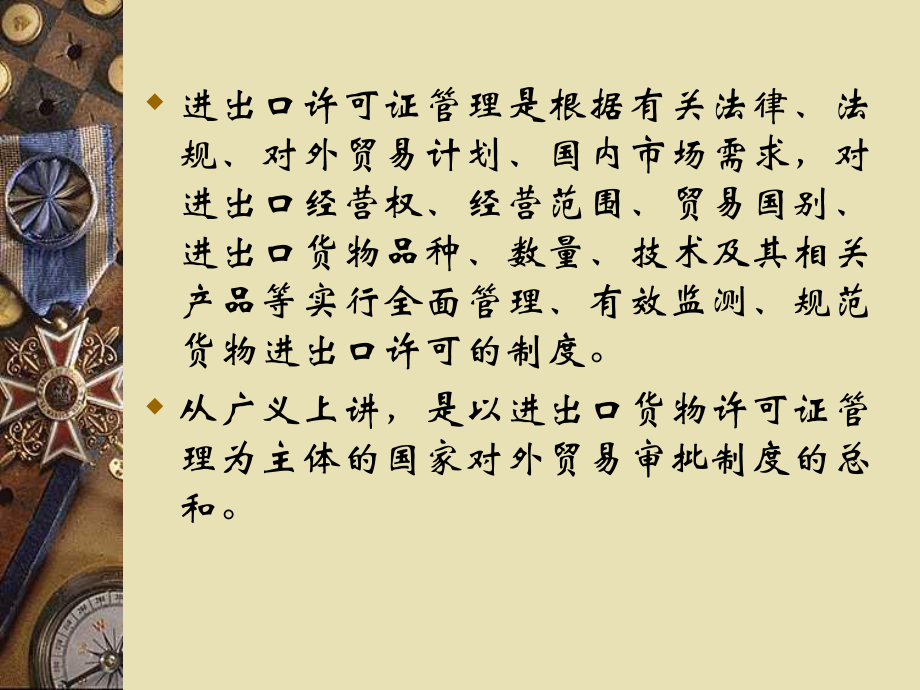 进出口许可证管理是根据有关法律、法
规、对外贸易计划、国内市场需求，对
进出口经营权、经营范围、贸易国别、
进出口货物品种、数量、技术及其相关
产品等实行全面管理、有效监测、规范
货物进出口许可的制度。
从广义上讲，是以进出口货物许可证管
理为主体的国家对外贸易审批制度的总
和。